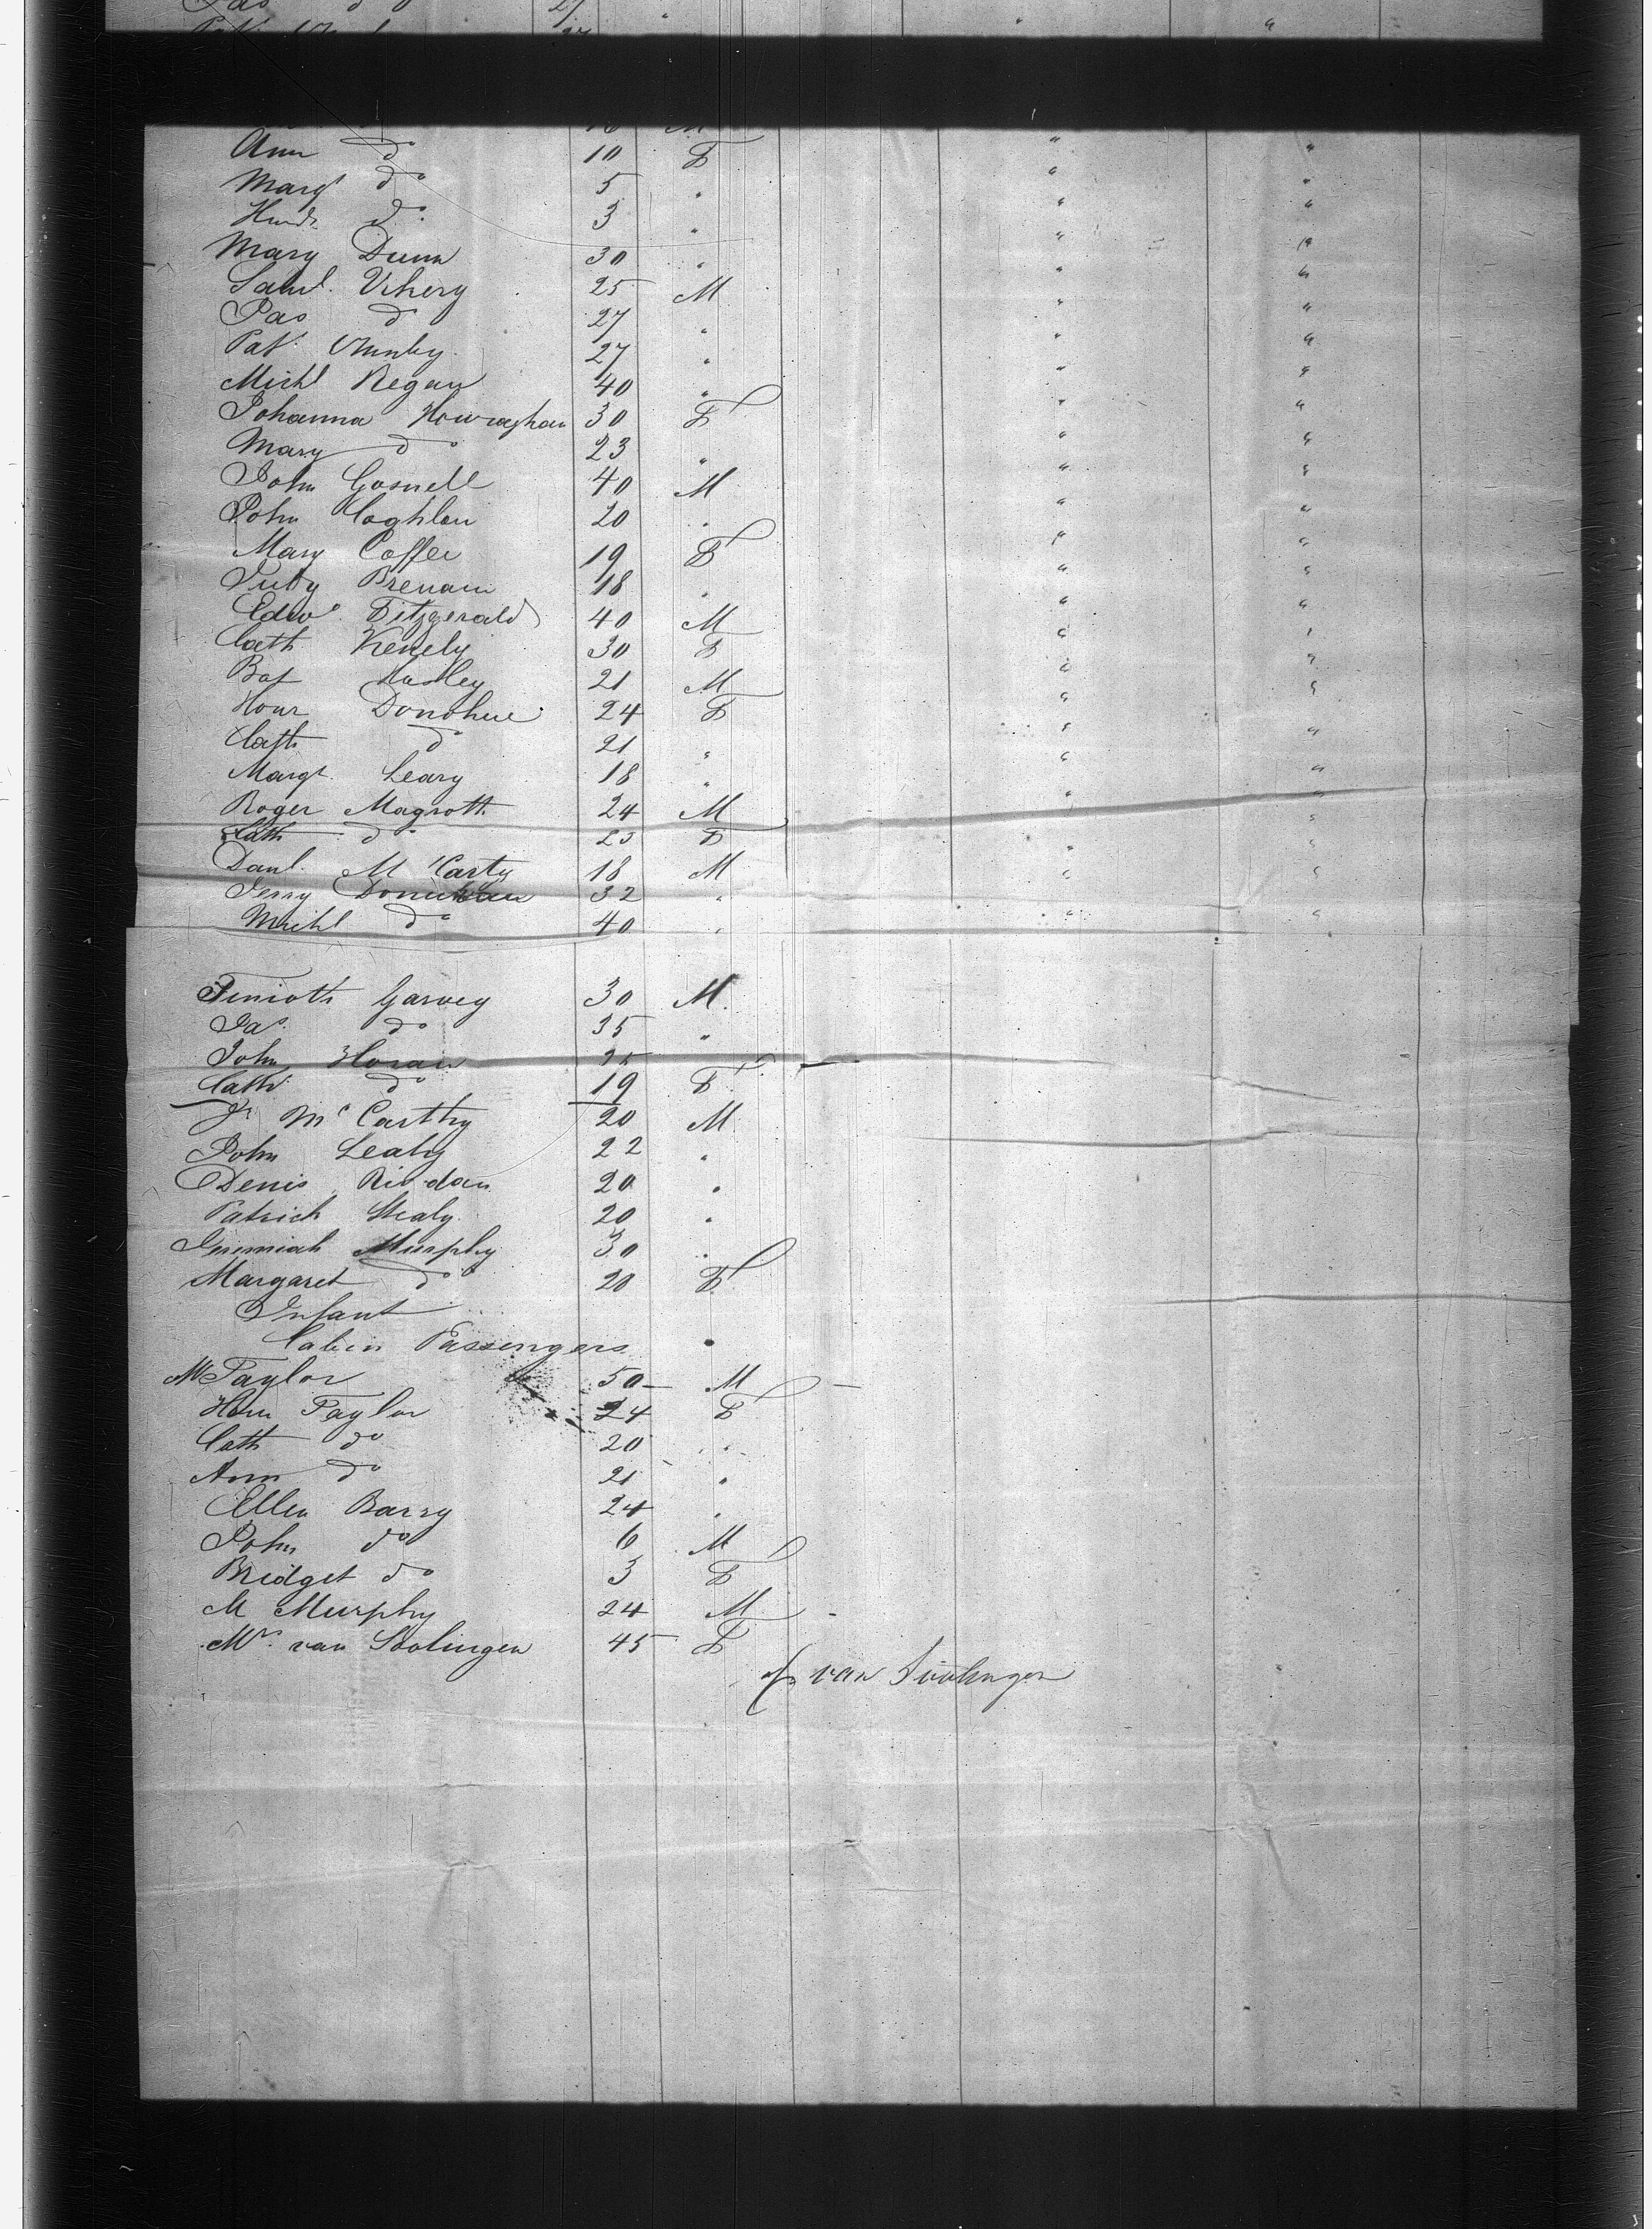 Jas do 27 "
Ann do 10 F " "
Margt do 5 " " "
do 3 " " "
Mary Dunn 30 " " "
Saml. Vikery 25 M " "
Jas do 27 " " "
Pat. 27 " " "
Michl Regan 40 " " "
Johanna Howraghan 30 F " "
Mary do 23 " " "
John Gosnell 40 M " "
John Coghlan 20 " " "
Mary Coffee 19 F " "
Judy Brenan 18 " " "
Edwd Fitzgerald 40 M " "
Cath Kenely 30 F " "
Bat 21 M " "
Honr Donohue 24 F " "
Cath do 21 " " "
Margt. Leary 18 " " "
Roger Magrath 24 M " "
Cath do 23 F "
Danl. McCarty 18 M " "
Jerry Donohue 32 " " "
Michl do 40 " " "
Timoth Garvey 30 M
Jas. do 35 "
John Horan 25
Cath do 19 F
Jr McCarthy 20 M
John Leahy 22 "
Denis Riordan 20 "
Patrick Healy 20 "
Jeremiah Murphy 30 "
Margaret do 20 F
Infant
Cabin Passengers "
M Taylor 50 M
Hon Taylor 24 F
Cath do 20 "
Ann do 21 "
Ellen Barry 24 "
John do 6 M
Bridget do 3 F
M Murphy 24 M
Mrs. van Soolingen 45 F
van Soolingen